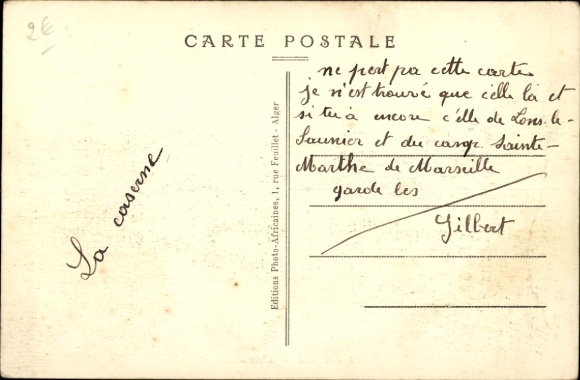 2€
CARTE POSTALE
ne pert pa cette carte
je n'est trouvé que celle là et
si tu à encore c'elle de Lons-le-
Saunier et du camp Sainte-
Marthe de Marseille
garde les
Gilbert
La caserne
Editions Photo-Africaines, 1, rue Feuillet - Alger